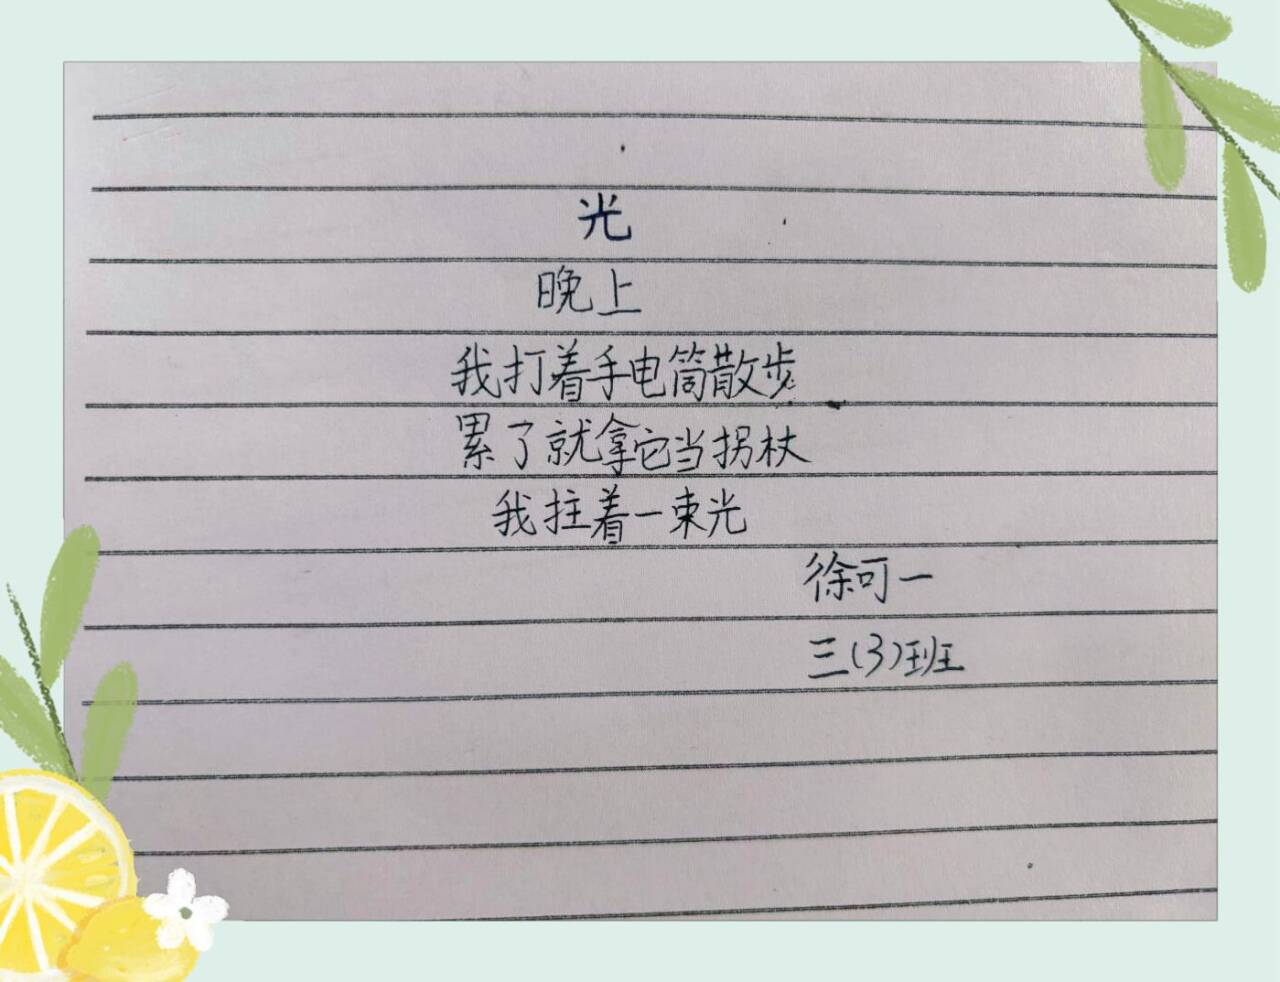 光
晚上
我打着手电筒散步
累了就拿它当拐杖
我拄着一束光
徐可一
三(3)班